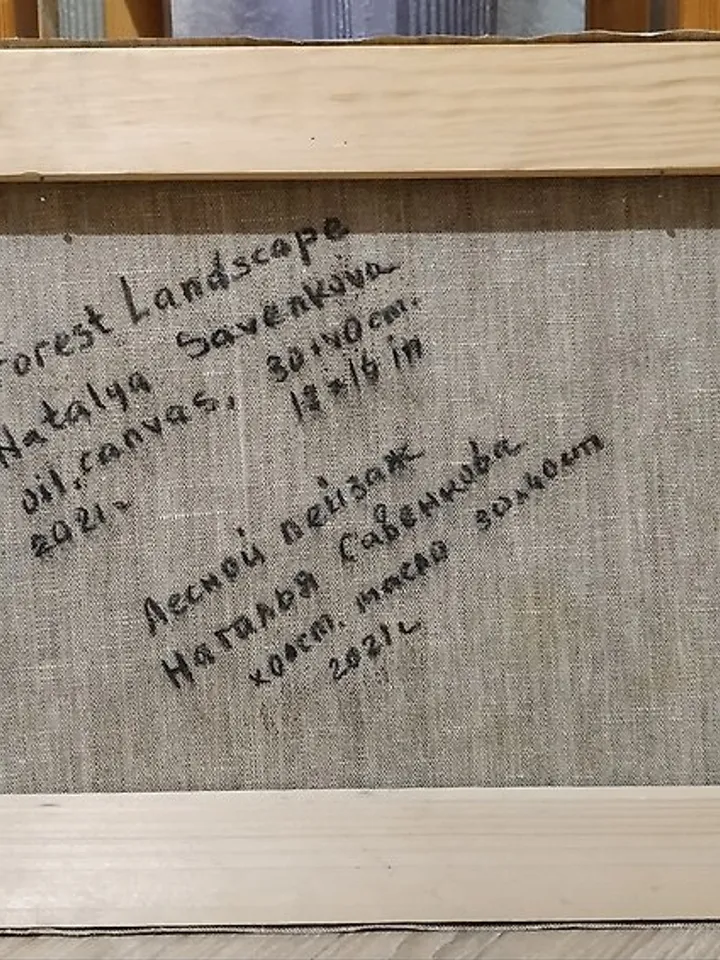 Forest Landscape
Natalya Savenkova
oil, canvas, 30x40 cm.
12x16 in
2021г
Лесной пейзаж
Наталья Савенкова
холст. масло 30x40cm
2021г